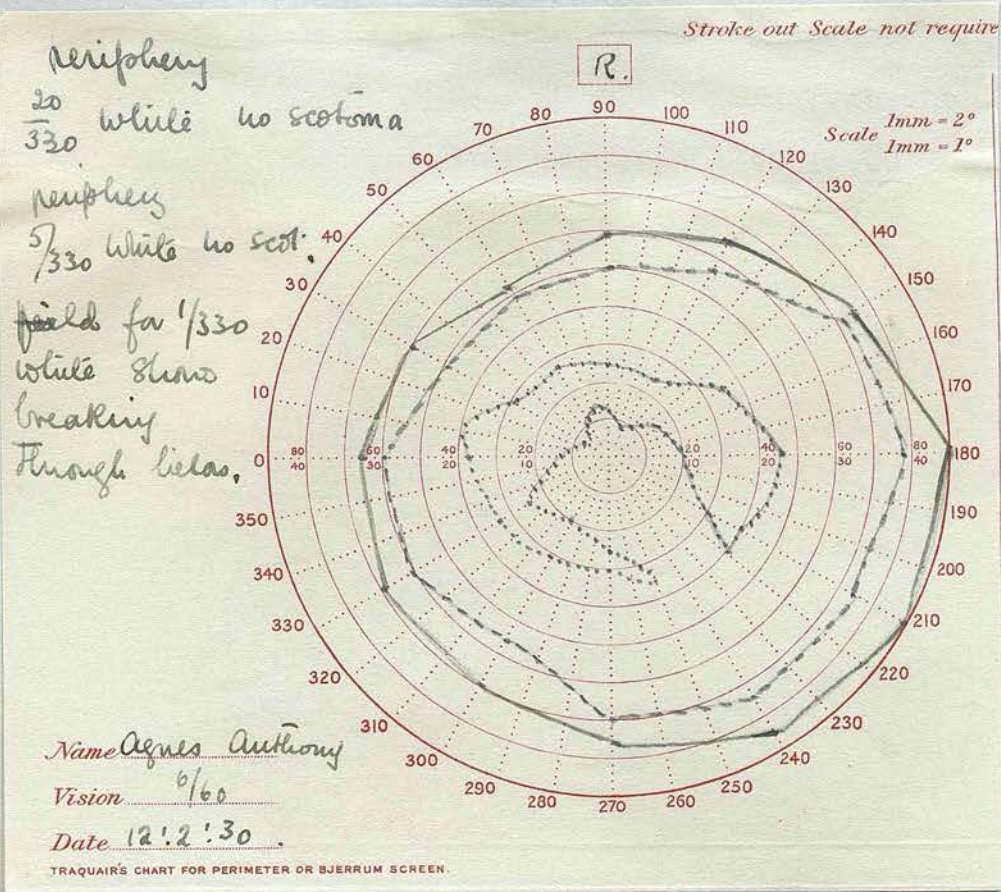 Stroke out Scale not require
R.
Scale 1mm = 2°
1mm = 1°
periphery
20/330 white no scotoma
periphery
5/330 white no scot.
field for 1/330
white shows
breaking
Through
0 10 20 30 40 50 60 70 80 90 100 110 120 130 140 150 160 170 180 190 200 210 220 230 240 250 260 270 280 290 300 310 320 330 340 350
80 60 40 20 20 40 60 80
40 30 20 10 10 20 30 40
Name Agnes Anthony
Vision 6/60
Date 12.2.30.
TRAQUAIR'S CHART FOR PERIMETER OR BJERRUM SCREEN.